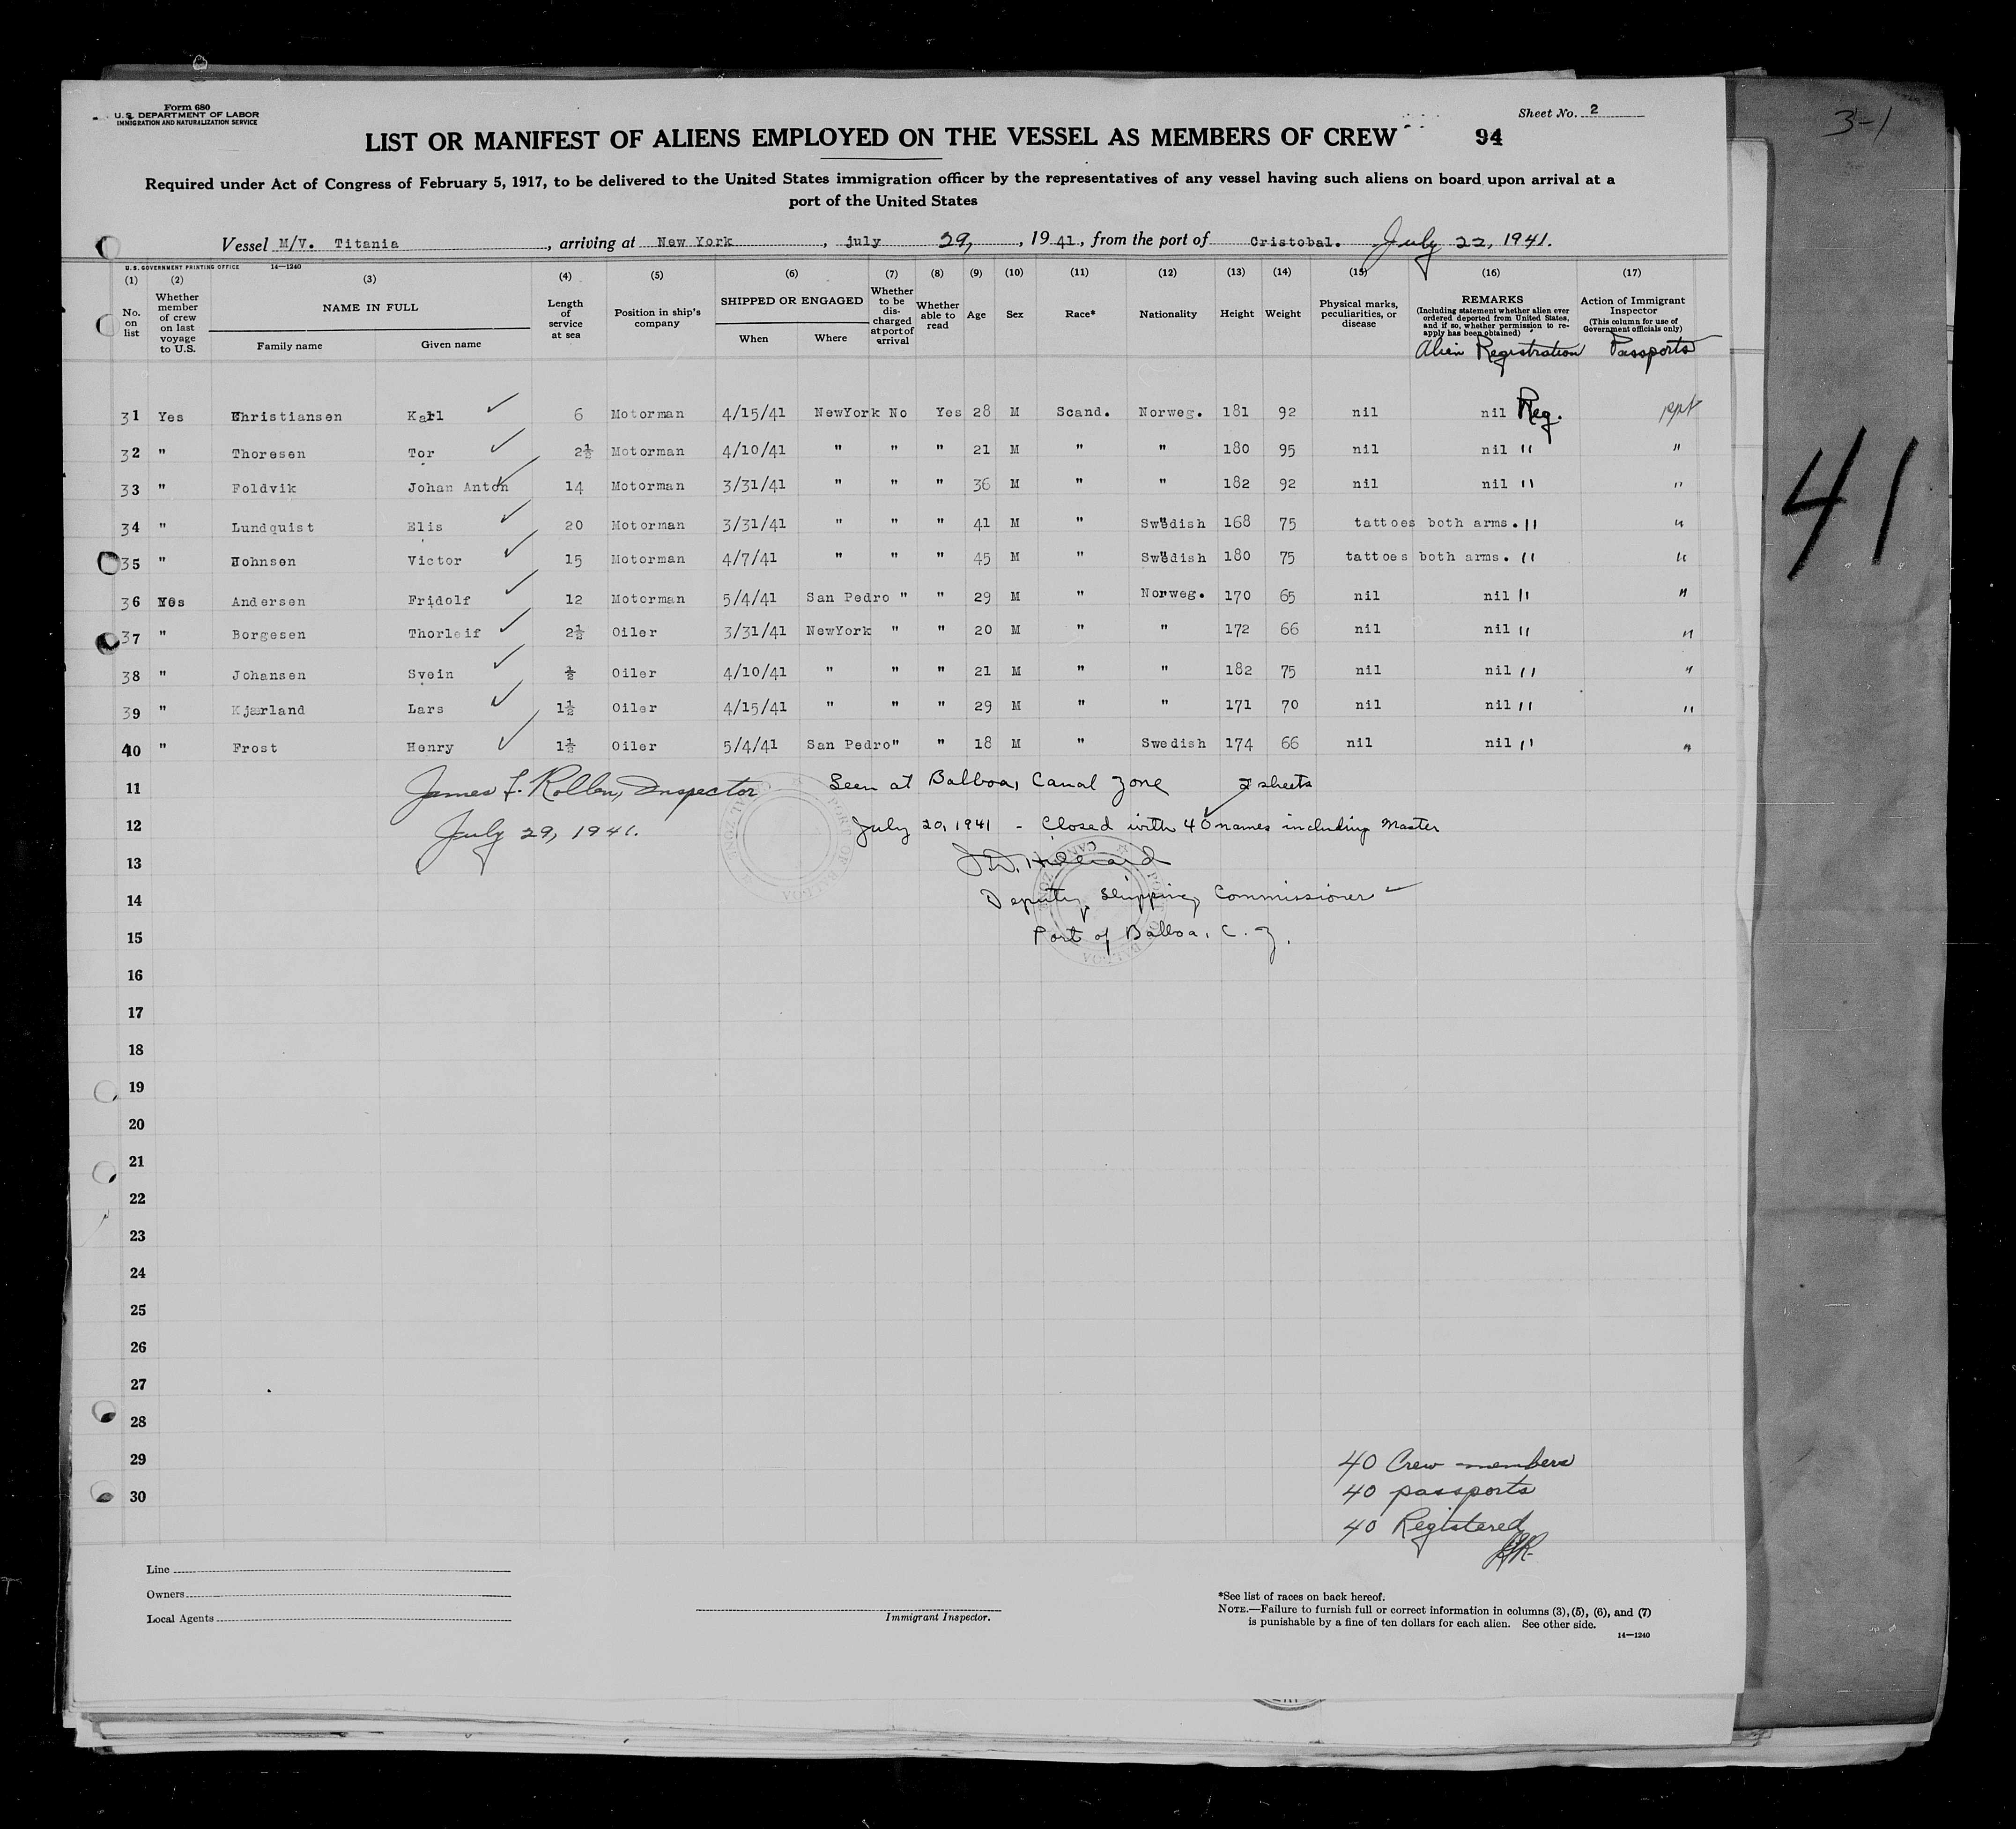 3-1
41
Form 680
U. S. DEPARTMENT OF LABOR
IMMIGRATION AND NATURALIZATION SERVICE
Sheet No. 2
LIST OR MANIFEST OF ALIENS EMPLOYED ON THE VESSEL AS MEMBERS OF CREW 94
Required under Act of Congress of February 5, 1917, to be delivered to the United States immigration officer by the representatives of any vessel having such aliens on board upon arrival at a
port of the United States
Vessel M/V. Titania, arriving at New York, july 29, 1941, from the port of Cristobal. July 22, 1941.
U. S. GOVERNMENT PRINTING OFFICE 14—1240
(1) No. on list
(2) Whether member of crew on last voyage to U.S.
(3) NAME IN FULL
Family name Given name
(4) Length of service at sea
(5) Position in ship's company
(6) SHIPPED OR ENGAGED
When Where
(7) Whether to be discharged at port of arrival
(8) Whether able to read
(9) Age
(10) Sex
(11) Race*
(12) Nationality
(13) Height
(14) Weight
(15) Physical marks, peculiarities, or disease
(16) REMARKS
(Including statement whether alien ever ordered deported from United States, and if so, whether permission to re-apply has been obtained)
Alien Registration
(17) Action of Immigrant Inspector
(This column for use of Government officials only)
Passports
31 Yes Christiansen Karl 6 Motorman 4/15/41 NewYork No Yes 28 M Scand. Norweg. 181 92 nil nil Reg. ppt
32 " Thoresen Tor 2½ Motorman 4/10/41 " " " 21 M " " 180 95 nil nil " "
33 " Foldvik Johan Anton 14 Motorman 3/31/41 " " " 36 M " " 182 92 nil nil " "
34 " Lundquist Elis 20 Motorman 3/31/41 " " " 41 M " Swedish 168 75 tattoes both arms. " "
35 " Johnsen Victor 15 Motorman 4/7/41 " " " 45 M " Swedish 180 75 tattoes both arms. " "
36 Yes Andersen Fridolf 12 Motorman 5/4/41 San Pedro " " 29 M " Norweg. 170 65 nil nil " "
37 " Borgesen Thorleif 2½ Oiler 3/31/41 NewYork " " 20 M " " 172 66 nil nil " "
38 " Johansen Svein ½ Oiler 4/10/41 " " " 21 M " " 182 75 nil nil " "
39 " Kjærland Lars 1½ Oiler 4/15/41 " " " 29 M " " 171 70 nil nil " "
40 " Frost Henry 1½ Oiler 5/4/41 San Pedro " " 18 M " Swedish 174 66 nil nil " "
11 James F. Rollen, Inspector Seen at Balboa, Canal Zone 2 sheets
12 July 29, 1941. July 20, 1941 - Closed with 40 names including Master
13 Hilliard
14 Deputy Shipping Commissioner
15 Port of Balboa, C. Z.
PORT OF BALBOA CANAL ZONE
PORT OF BALBOA CANAL ZONE
16
17
18
19
20
21
22
23
24
25
26
27
28
29 40 Crew members
30 40 passports
40 Registered
Line
Owners
Local Agents
Immigrant Inspector.
*See list of races on back hereof.
NOTE.—Failure to furnish full or correct information in columns (3), (5), (6), and (7)
is punishable by a fine of ten dollars for each alien. See other side.
14—1240